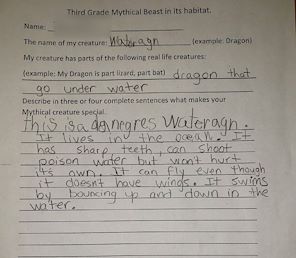 Third Grade Mythical Beast in its habitat.
Name:
The name of my creature: Wateragn (example: Dragon)
My creature has parts of the following real life creatures:
(example: My Dragon is part lizard, part bat) dragon that
go under water
Describe in three or four complete sentences what makes your
Mythical creature special.
this is a dangeres Wateragn.
It lives in the ocean. It
has sharp teeth, can shoot
poison water but wont hurt
it's own. It can fly even though
it doesnt have wings. It swims
by bouncing up and down in the
water.